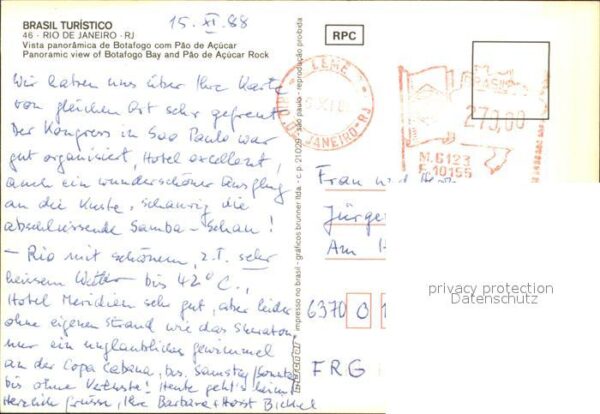 15. XI. 88
BRASIL TURÍSTICO
46 - RIO DE JANEIRO - RJ
Vista panorâmica de Botafogo com Pão de Açúcar
Panoramic view of Botafogo Bay and Pão de Açúcar Rock
Wir haben uns über Ihre Karte
von gleichen Ort sehr gefreut.
Der Kongress in Sao Paulo war
gut organisiert, Hotel excellent,
auch ein wunderschöner Ausflug
an die Küste, schaurig die
abschliessende Samba-Schau!
- Rio mit schönem, z.T. sehr
heissem Wetter bis 42° C.,
Hotel Meridien sehr gut, aber leider
ohne eigenen Strand wie das Sheraton,
nur ein unglaubliches Gewimmel
an der Copa Cabana, bes. Samstag/Sonntag
bis ohne Verluste! Heute geht's heim
Herzlich Grüsse, Ihre Barbara + Horst
impresso no brasil - gráficos brunner ltda. - c.p. 21029 - são paulo - reprodução proibida
RPC
LEME
RIO DE JANEIRO-RJ
BRASIL
270,00
M.G123
F.10155
Frau und
Jürge
Am
6370 O 1
FRG
privacy protection
Datenschutz